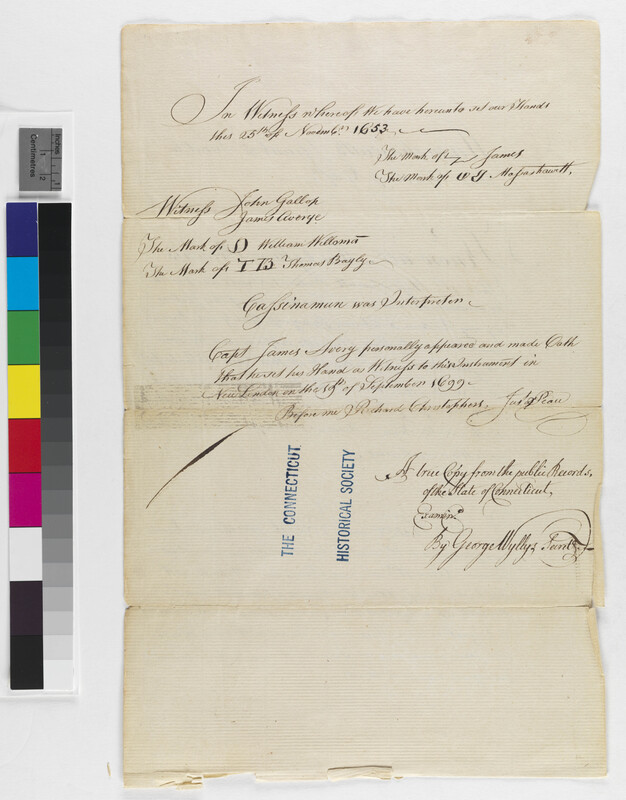 In Witness whereof We have hereunto set our Hands
this 25th of Novembr. 1653
The Mark of James
The Mark of Massashawitt,
Witness John Gallop
James Averye
The Mark of William Willoma
The Mark of TB Thomas Bayly
Cassinamun was Interpreter
Capt James Avery personally appeared and made Oath
that he set his Hand as Witness to this Instrument in
New London on the of September 1699
Before me Richard Christophers, Justs. Peace
A true Copy from the public Records,
of the State of Connecticut,
Examind.
By George Wyllys
THE CONNECTICUT
HISTORICAL SOCIETY
Centimetres
Inches
1
2
1